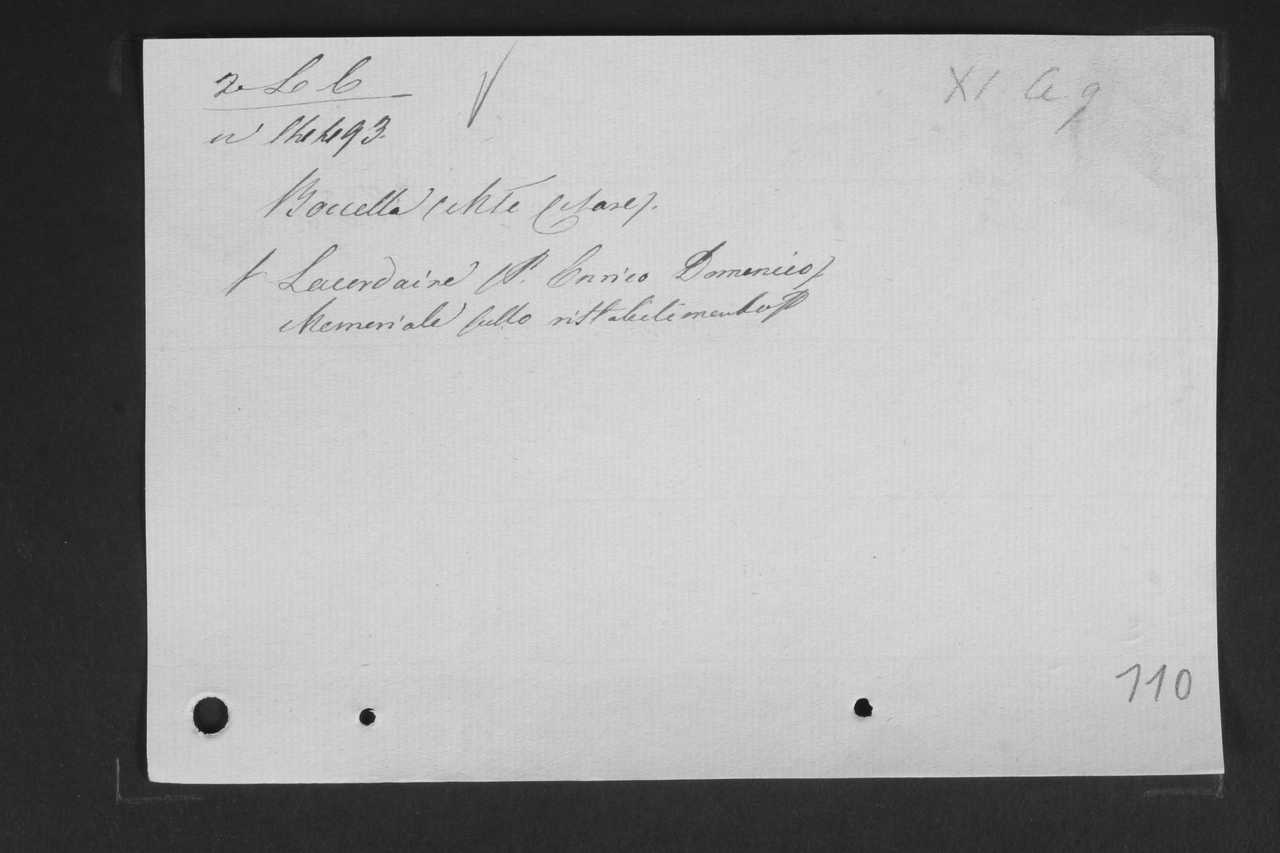 2 L C
XI C 9
n° 14493
Boccella (Mse Cesare).
Lacordaire (P. Enrico Domenico)
Memoriale sullo ristabilimento
110